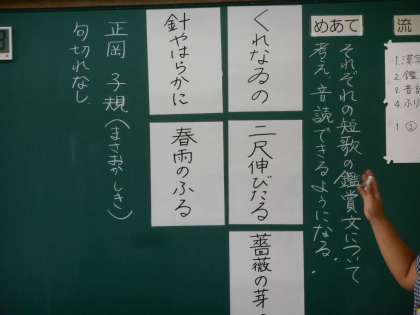 流
1.漢字
2.鑑
3.音読
4.ふり
1 ②
めあて
それぞれの短歌の鑑賞文について
考え、音読できるようになる。
くれなゐの
二尺伸びたる
薔薇の芽の
針やはらかに
春雨のふる
正岡 子規(まさおかしき)
句切れなし